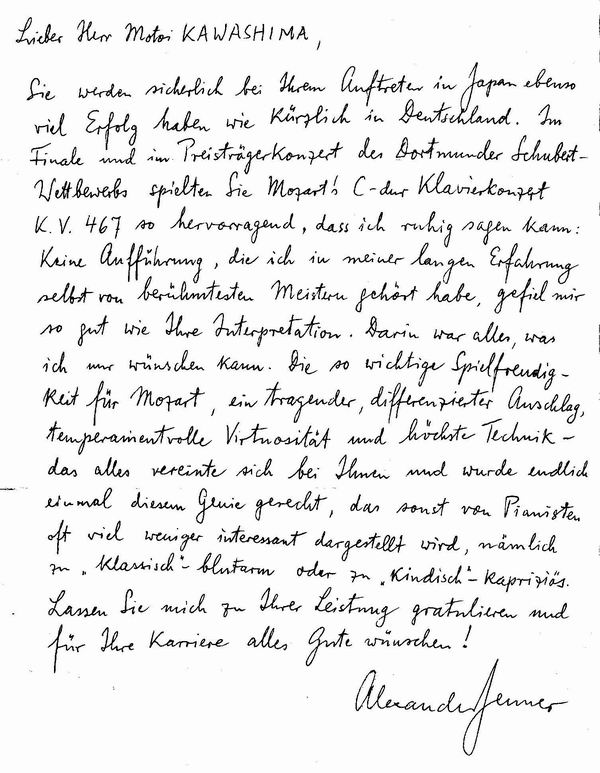 Lieber Herr Motoi KAWASHIMA,
Sie werden sicherlich bei Ihrem Auftreten in Japan ebenso
viel Erfolg haben wie kürzlich in Deutschland. Im
Finale und im Preisträgerkonzert des Dortmunder Schubert-
Wettbewerbs spielten Sie Mozart's C-dur Klavierkonzert
K.V. 467 so hervorragend, dass ich ruhig sagen kann:
Keine Aufführung, die ich in meiner langen Erfahrung
selbst von berühmtesten Meistern gehört habe, gefiel mir
so gut wie Ihre Interpretation. Darin war alles, was
ich nur wünschen kann. Die so wichtige Spielfreudig-
keit für Mozart, ein tragender, differenzierter Anschlag,
temperamentvolle Virtuosität und höchste Technik –
das alles vereinte sich bei Ihnen und wurde endlich
einmal diesem Genie gerecht, das sonst von Pianisten
oft viel weniger interessant dargestellt wird, nämlich
zu „klassisch"-blutarm oder zu „kindisch"-kapriziös.
Lassen Sie mich zu Ihrer Leistung gratulieren und
für Ihre Karriere alles Gute wünschen!
Alexander Jenner